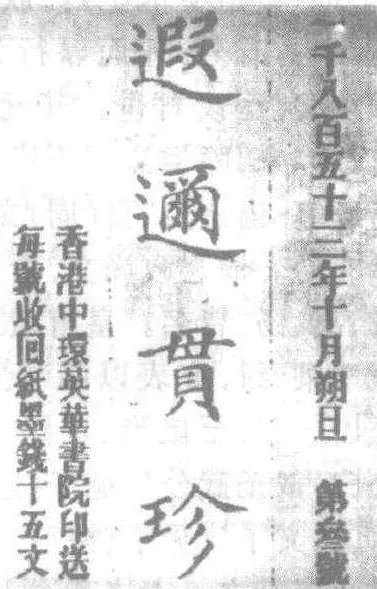 一千八百五十三年十月朔旦　第叄號
遐邇貫珍
香港中環英華書院印送
每號收回紙墨錢十五文